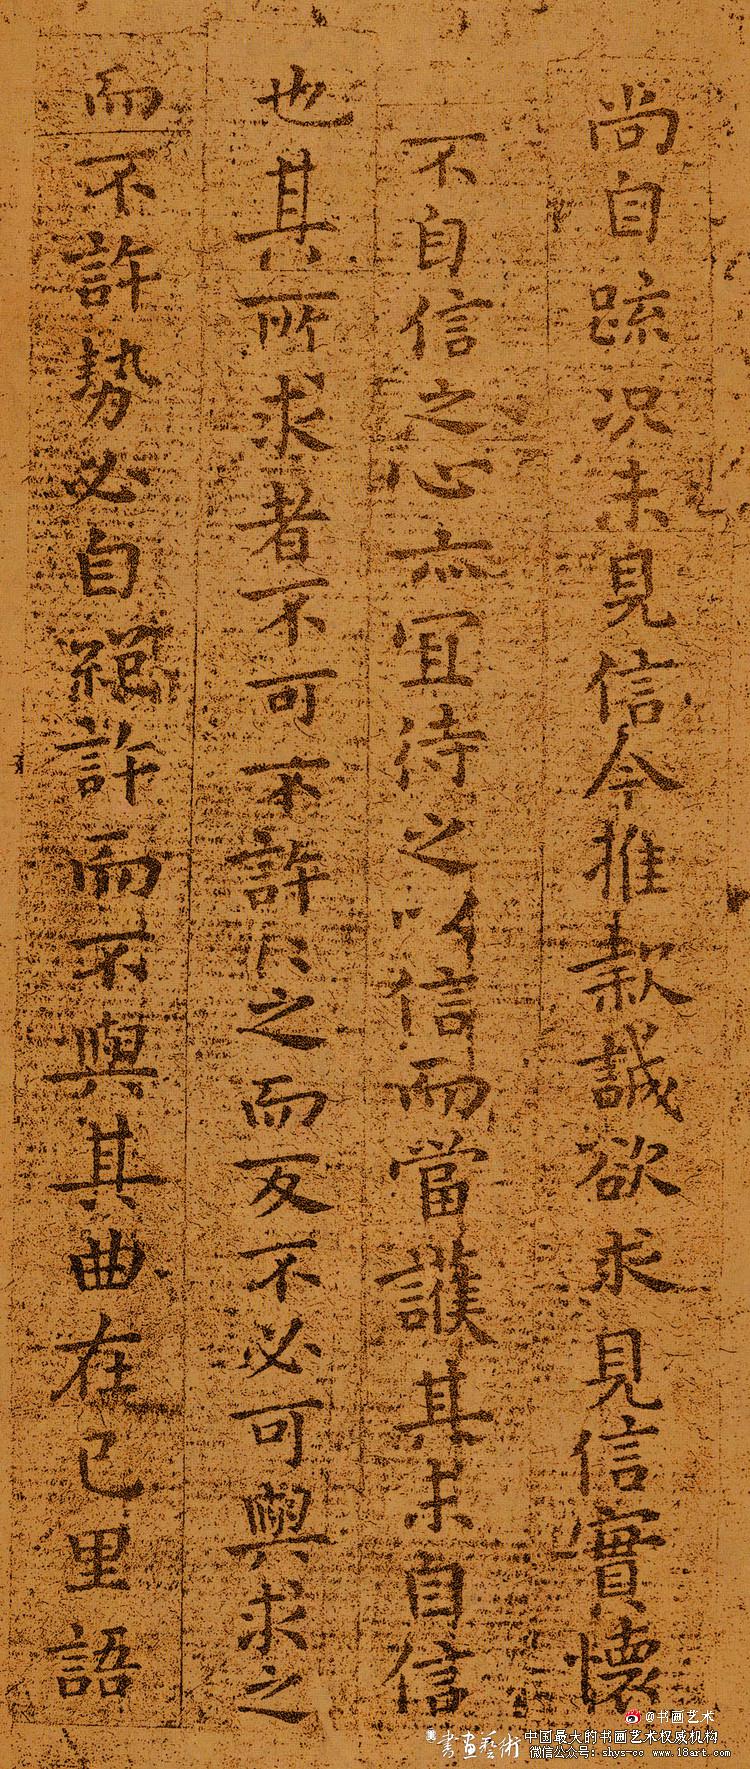 尚自疏況未見信今推款誠欲求見信實懷
不自信之心亦宜待之以信而當護其未自信
也其所求者不可不許許之而反不必可與求之
而不許勢必自絕許而不與其曲在己里語
@书画艺术
書畫藝術 中国最大的书画艺术权威机构
微信公众号：shys-cc www.18art.com